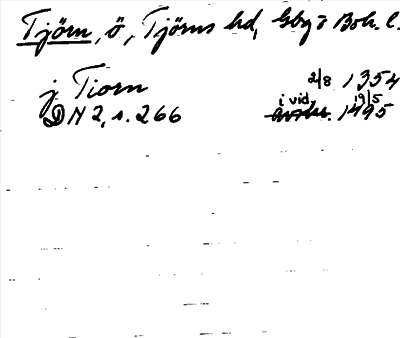 Tjörn, ö, Tjörns hd, Gbg o Boh. l.
j Tiorn 2/8 1354
DN 2, s. 266 i vid. 19/5 1495